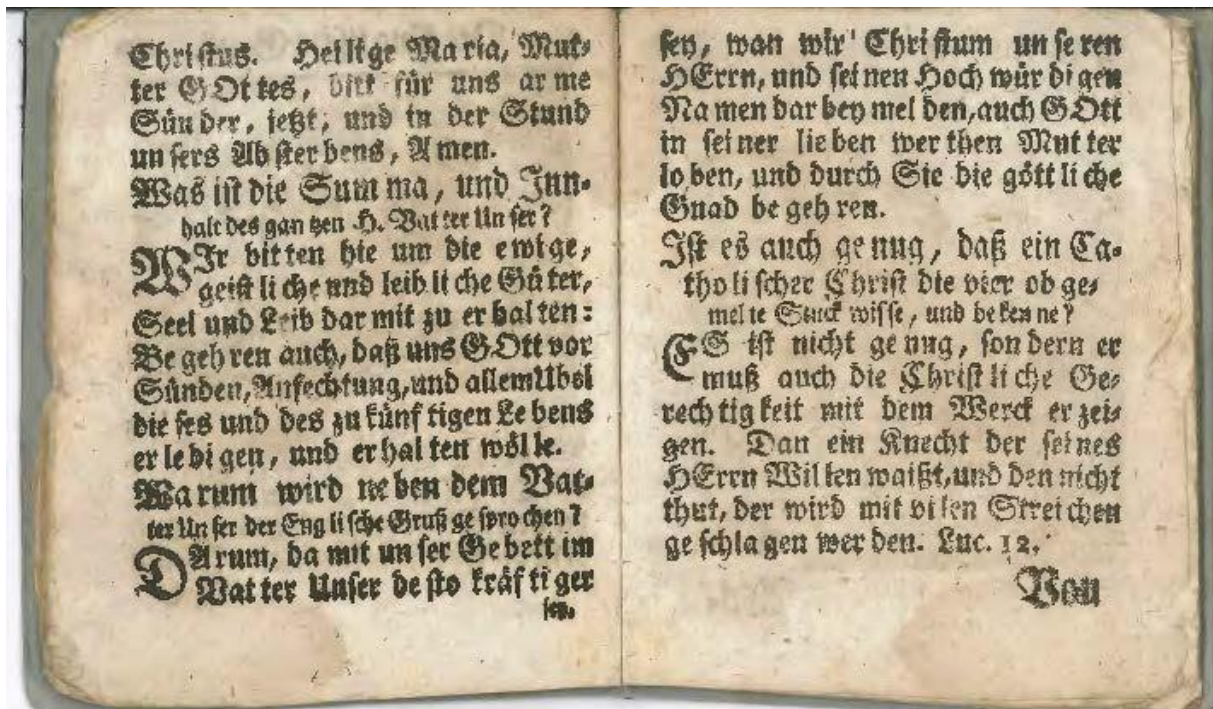 Chri stus. Hei li ge Ma ria, Mut-
ter GOt tes, bitt für uns ar me
Sün der, jetzt, und in der Stund
un sers Ab ster bens, A men.
Was ist die Sum ma, und Inn-
halt des gan tzen H. Vat ter Un ser?
WIr bit ten hie um die e wi ge,
geist li che und leib li che Gü ter,
Seel und Leib dar mit zu er hal ten:
Be geh ren auch, daß uns GOtt vor
Sünden, Anfechtung, und allem Ubel
die ses und des zu künf tigen Le bens
er le di gen, und er hal ten wölle.
Wa rum wird ne ben dem Vat-
ter Un ser der Eng li sche Gruß ge spro chen?
DArum, da mit un ser Ge bett im
Vat ter Unser de sto kräf ti ger
sey,
sey, wan wir Chri stum un se ren
HErrn, und sei nen Hoch wür di gen
Na men dar bey mel den, auch GOtt
in sei ner lie ben wer then Mut ter
lo ben, und durch Sie die gött li che
Gnad be geh ren.
Ist es auch ge nug, daß ein Ca-
tho li scher Christ die vier ob ge-
mel te Stuck wis se, und be ken ne?
ES ist nicht ge nug, son dern er
muß auch die Christ li che Ge-
rech tig keit mit dem Werck er zei-
gen. Dan ein Knecht der seines
HErrn Wil len waißt, und den nicht
thut, der wird mit vi len Strei chen
ge schla gen wer den. Luc. 12.
Von